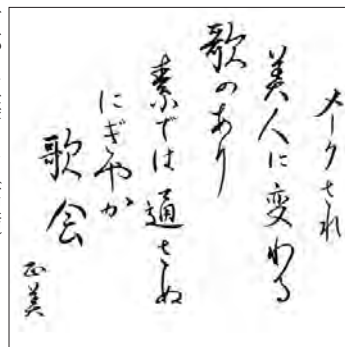 メークされ
美人に変わる
歌のあり
素では通さぬ
にぎやか
歌会
正美